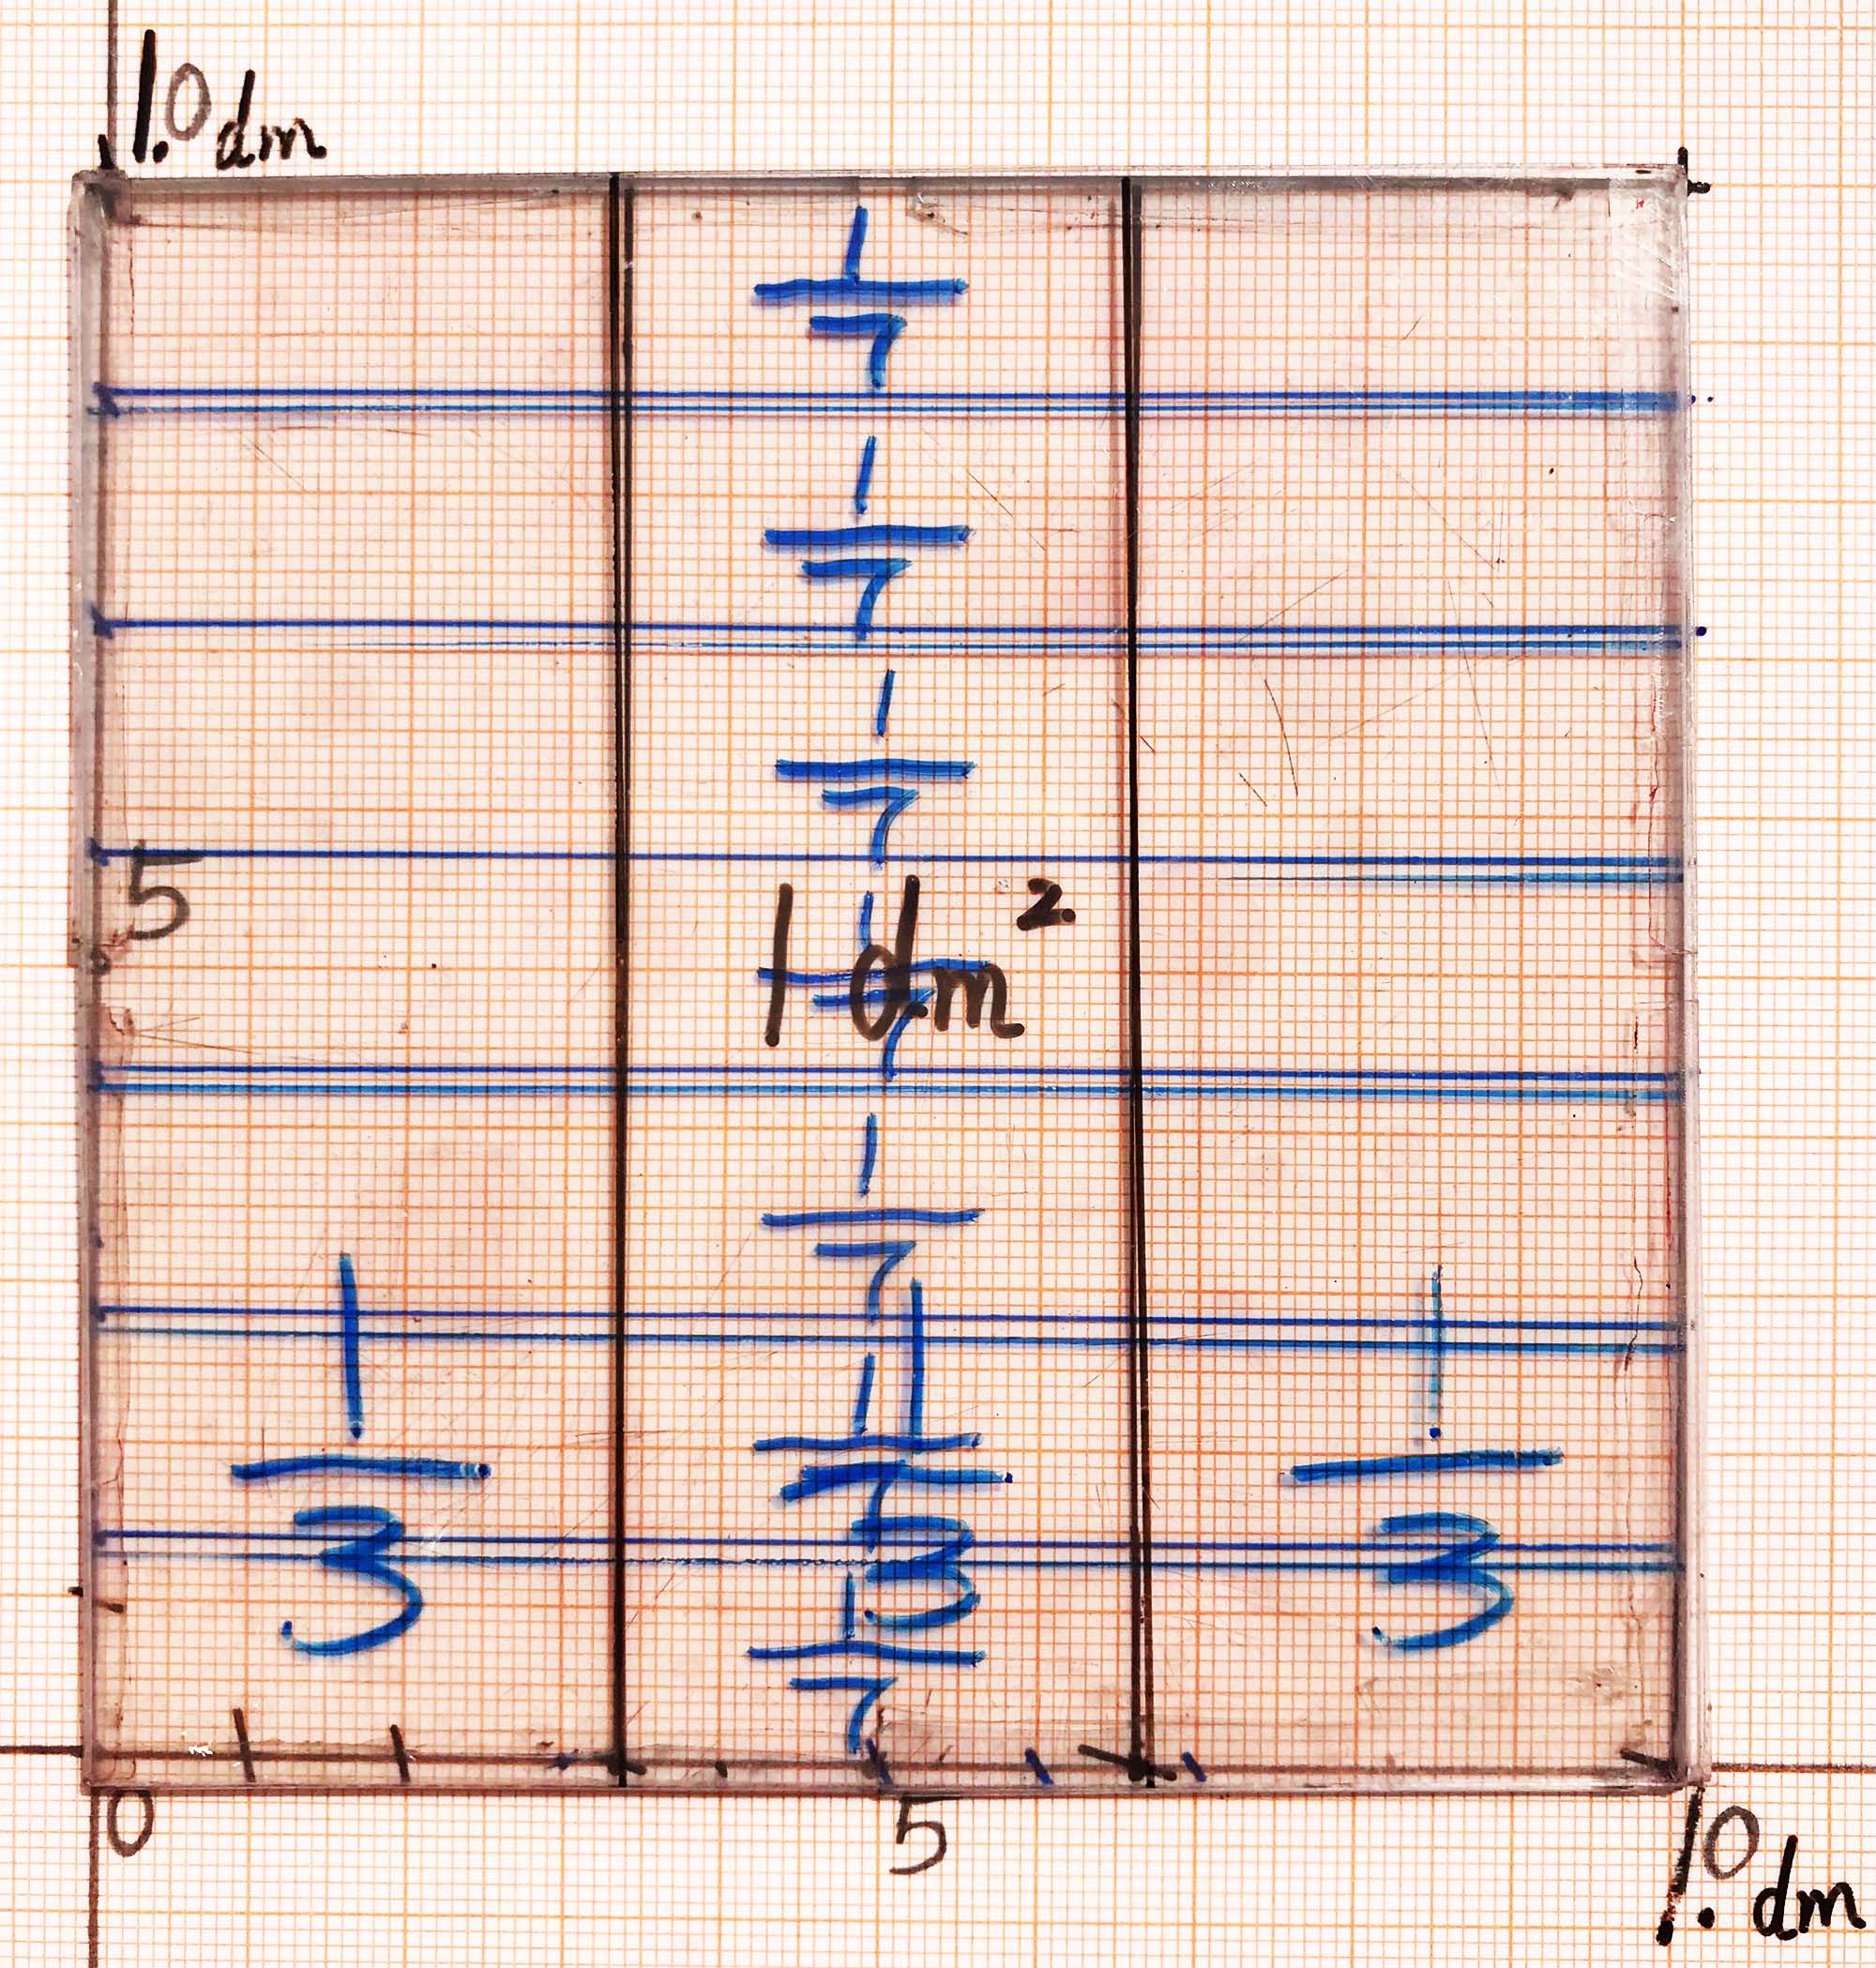 1.0 dm
1/7
1/7
1/7
5
1 dm²
1/7
1/7
1/3 1/3 1/3
1/7
1/7
0 5 1.0 dm